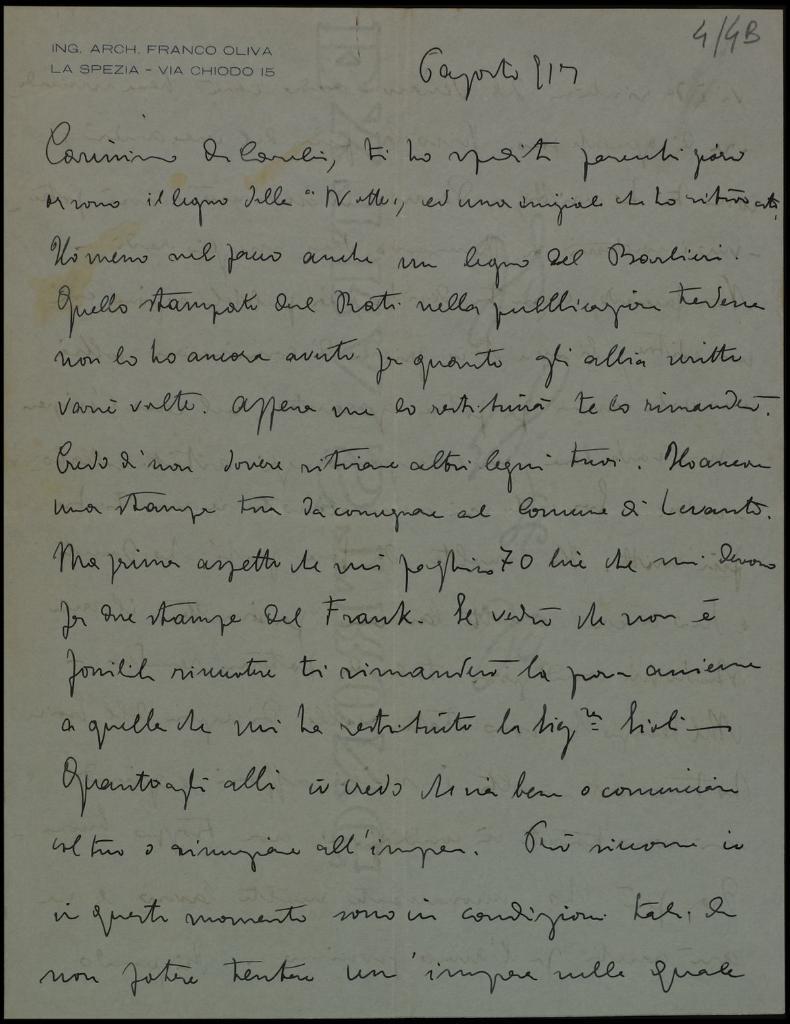 4/4B
ING. ARCH. FRANCO OLIVA
LA SPEZIA - VIA CHIODO 15
6 agosto 917
Carissimo De Carolis, ti ho spedito
il legno della "Notte", ed una iniziale che ho ritrovata.
Ho messo nel pacco anche un legno del Barbieri.
Quello stampato dal Rati nella pubblicazione tedesca
non lo ho ancora avuto per quanto gli abbia scritto
varie volte. Appena me lo restituirà te lo rimanderò.
Credo di non dovere ritirare altri legni tuoi. Ho ancora
una stampa tua da consegnare al Comune di Levanto.
Ma prima aspetto che mi paghino 70 lire che mi devono
per due stampe del Frank. Se vedrò che non è
possibile riscuotere ti rimanderò la prova assieme
a quella che mi ha restituito la Sigra
Quanto agli albi io credo che sia bene o cominciare
col tuo o rinunziare all'impresa. Però siccome io
in questo momento sono in condizioni tali, da
non potere tentare un'impresa nella quale